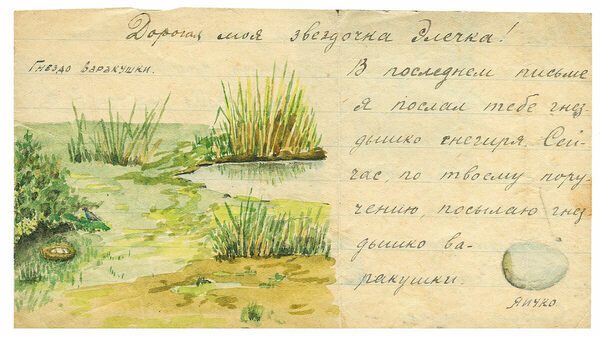 Дорогая моя звездочка Элечка!
Гнездо варакушки.
В последнем письме
я послал тебе гнез-
дышко снегиря. Сей-
час, по твоему пору-
чению, посылаю гнез
дышко ва-
ракушки.
Яичко